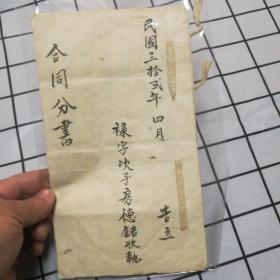 民國三拾弍年四月 吉立
祿字次子房德銘收執
合同分書